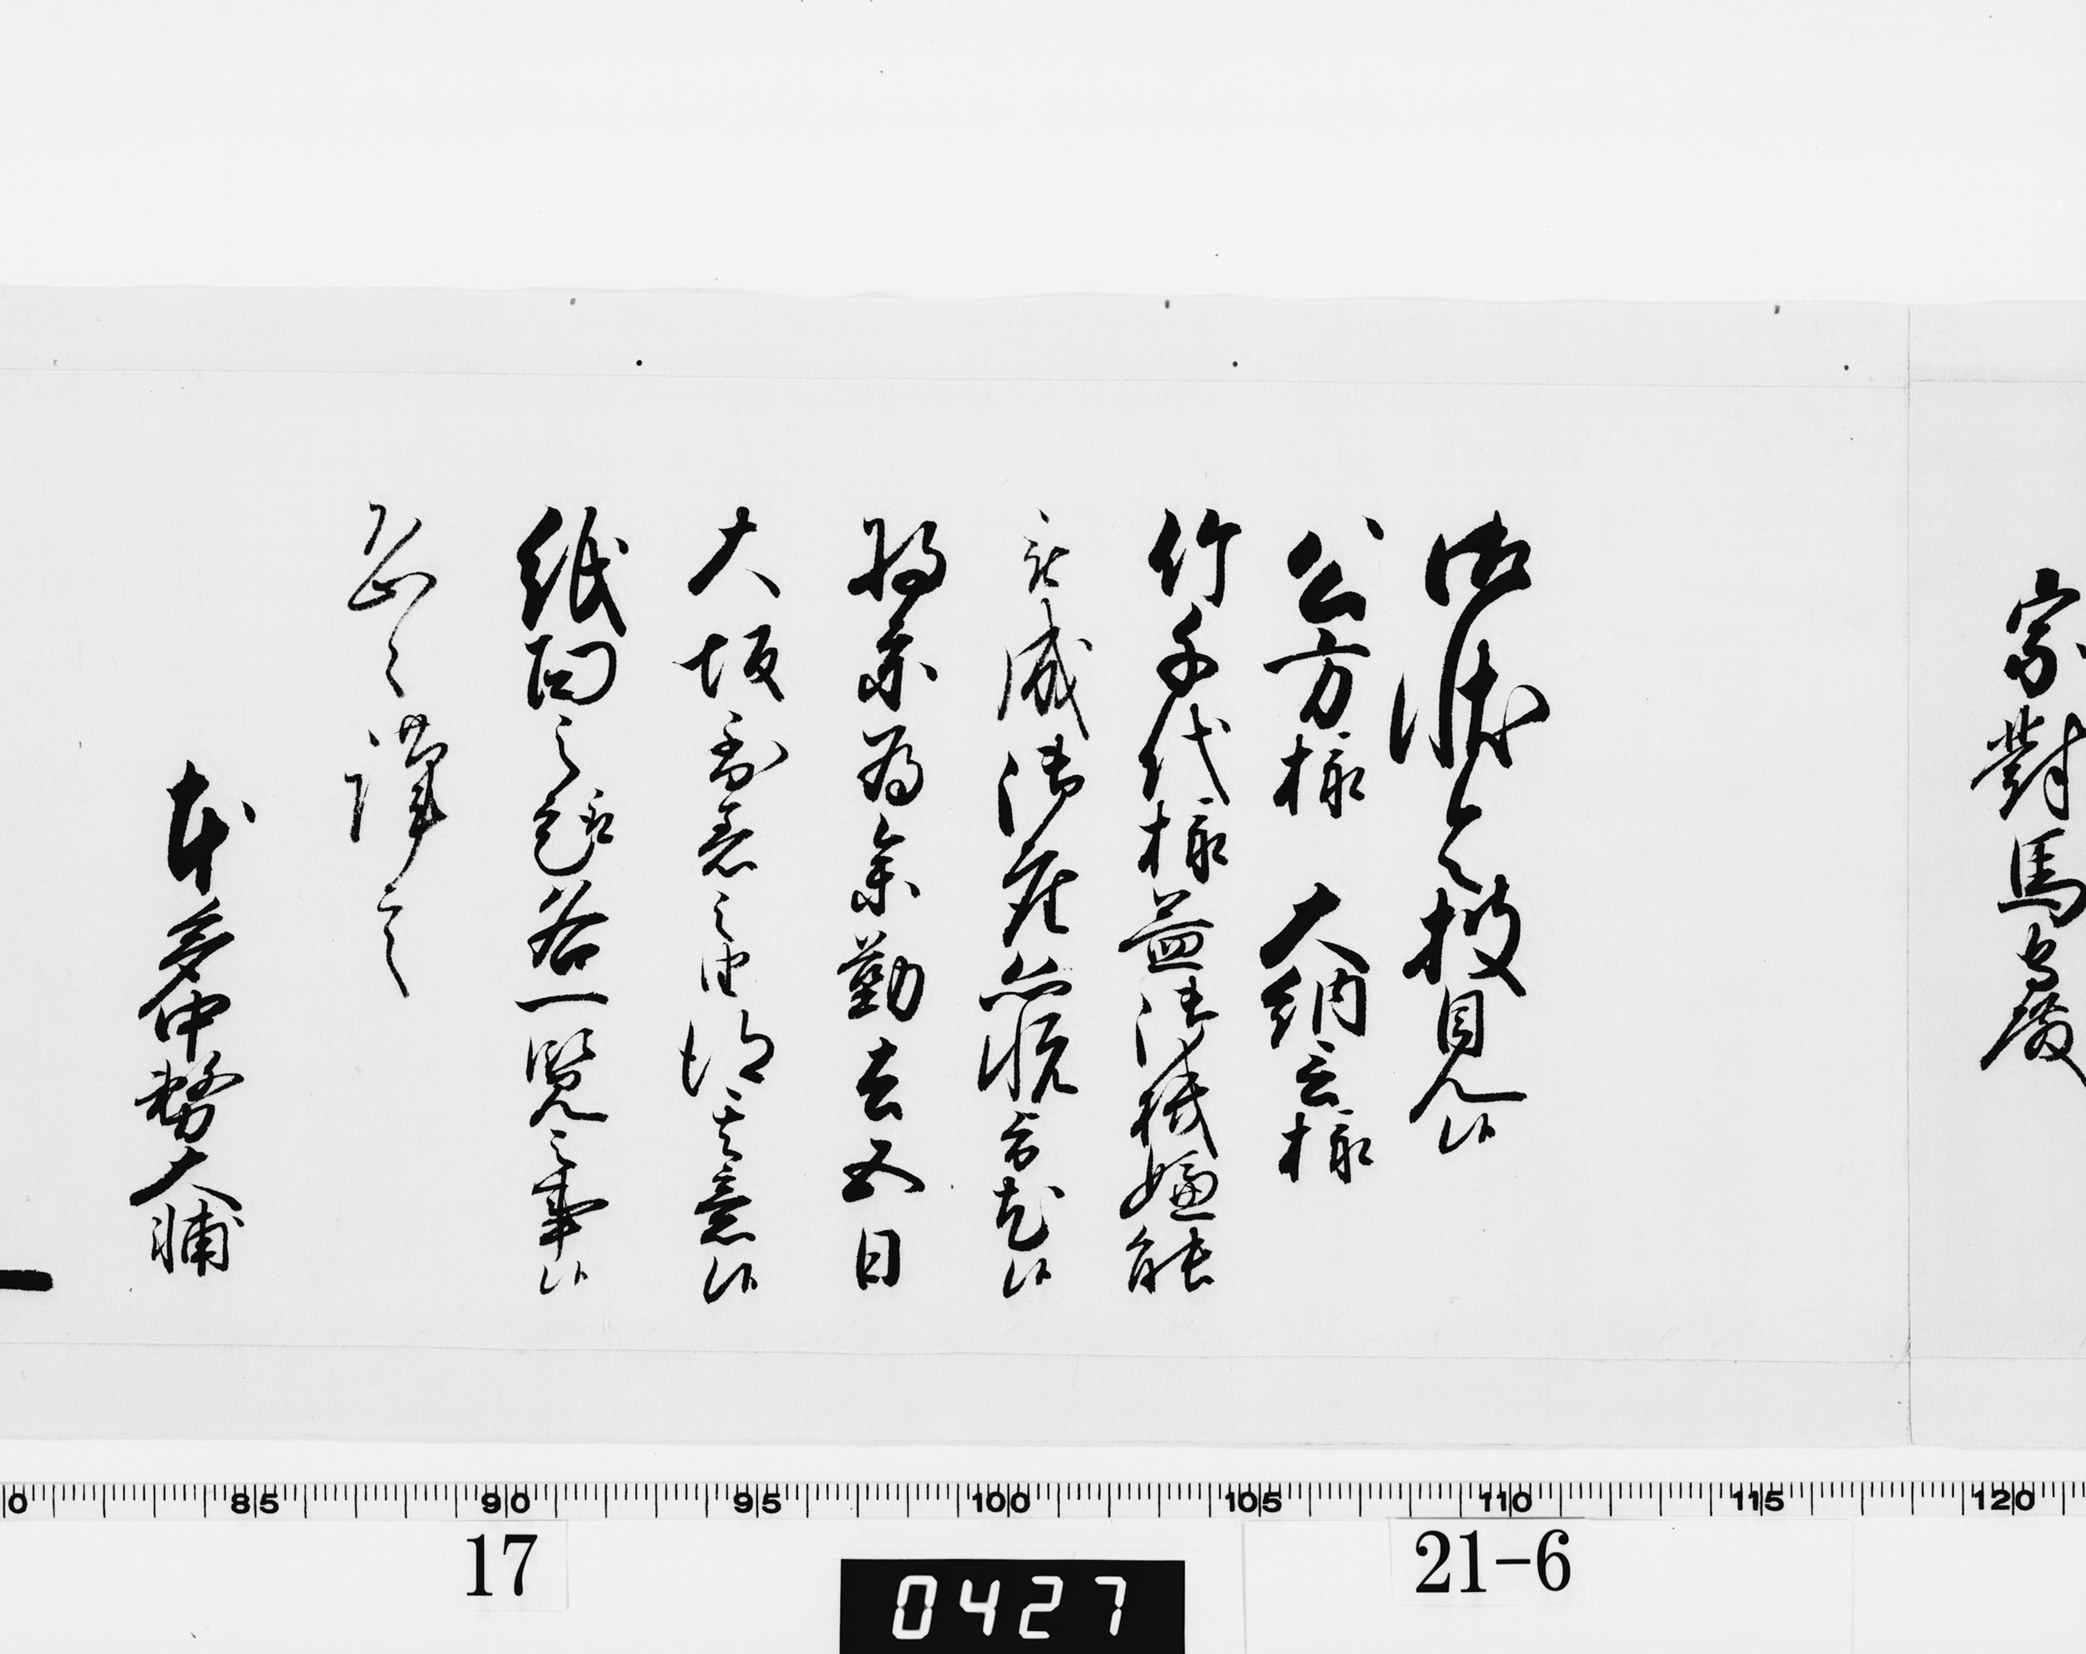 宗對馬守殿
御状令披見候
公方様 大納言様
竹千代様益御機嫌能
被成御座恐悦旨尤候
将亦為参勤去五日
大坂到着之由得其意候
紙面之趣各一覧之事候
恐々謹言
本多中務大輔
0 85 90 95 100 105 110 115 120
17 21-6
0427